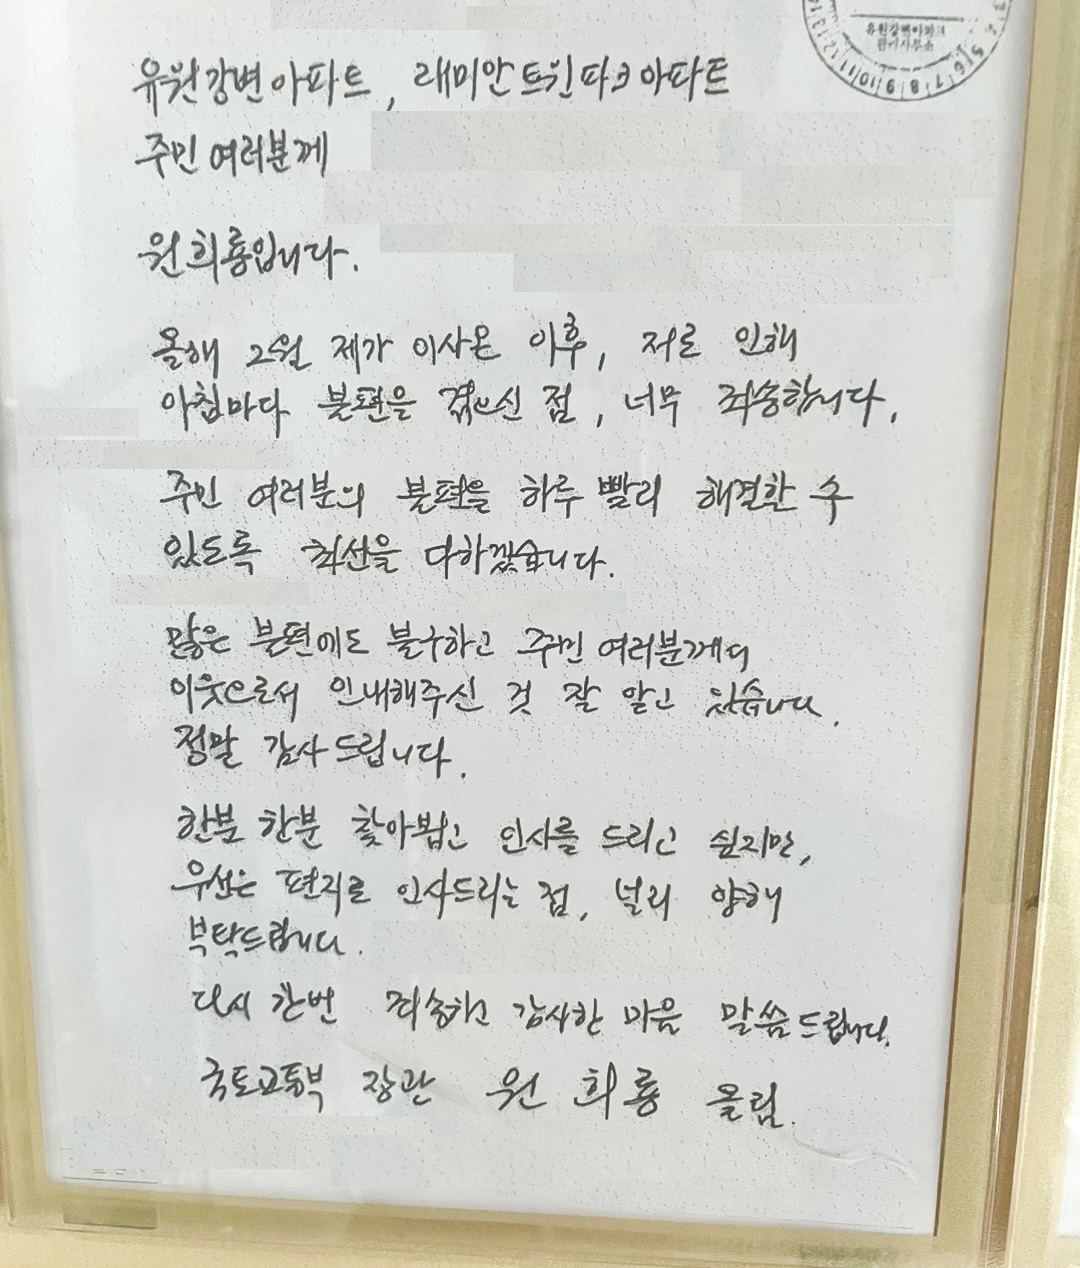 유원강변아파트
관리사무소
유원강변아파트, 래미안트윈파크아파트
주민 여러분께
원희룡입니다.
올해 2월 제가 이사온 이후, 저로 인해
아침마다 불편을 겪으신 점, 너무 죄송합니다.
주민 여러분의 불편을 하루 빨리 해결할 수
있도록 최선을 다하겠습니다.
많은 불편에도 불구하고 주민 여러분께서
이웃으로서 인내해주신 것 잘 알고 있습니다.
정말 감사드립니다.
한분 한분 찾아뵙고 인사를 드리고 싶지만,
우선은 편지로 인사드리는 점, 널리 양해
부탁드립니다.
다시 한번 죄송하고 감사한 마음 말씀드립니다.
국토교통부 장관 원희룡 올림.